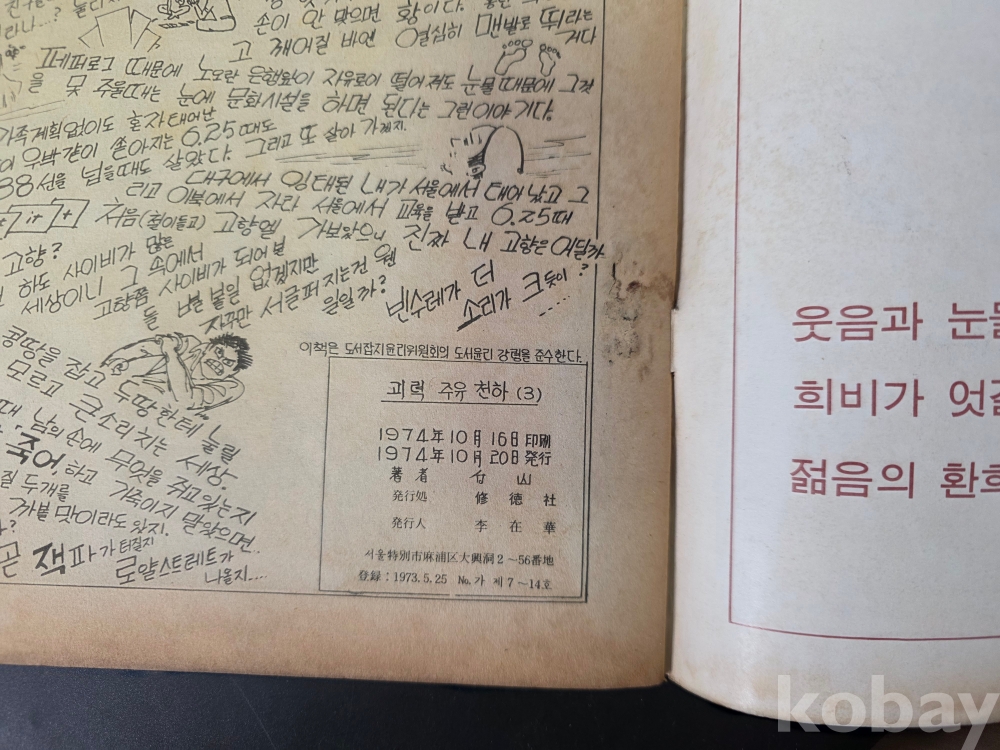 손이 안 맞으면 황이다.
고 깨어질 바엔 열심히 맨발로 뛰라는
거다
페퍼로그 때문에 노오란 은행잎이 자유로이 떨어져도 눈물 때문에 그것
을 못 주울때는 눈에 문화시설을 하면 된다는 그런이야기다.
가족계획없이도 혼자 태어난
우박같이 쏟아지는 6.25때도
38선을 넘을때도 살았다. 그리고 또 살아 가겠지.
대구에서 잉태된 내가 서울에서 태어났고 그
리고 이북에서 자라 서울에서 교육을 받고 6.25때
처음(철이들고) 고향엘 가보았으니 진짜 내 고향은 어딜까
고향? ?
하도 사이비가 많은
세상이니 그 속에서
고향쯤 사이비가 되어 별
볼일 없겠지만
자꾸만 서글퍼 지는건 웬
일일까?
빈수레가 더
소리가 크듯이
....
콩땅을 잡고 두땅한테 눌릴
모르고 큰소리 치는 세상
때, 남의 손에 무엇을 쥐고있는지
죽어, 하고 가족이지 말았으면..
두개를
까볼 맛이라도 있지.
곧 잭파가 터질지
로얄스트레트가
나올지....
이책은 도서잡지윤리위원회의 도서윤리 강령을 준수한다.
괴력 주유 천하 (3)
1974年10月16日 印刷
1974年10月20日 発行
著者 山
発行処 修徳社
発行人 李在華
서울特別市麻浦区大興洞2～56番地
登録:1973.5.25 No.가 제7～14호
웃음과 눈물
희비가 엇갈
젊음의 환희
kobay